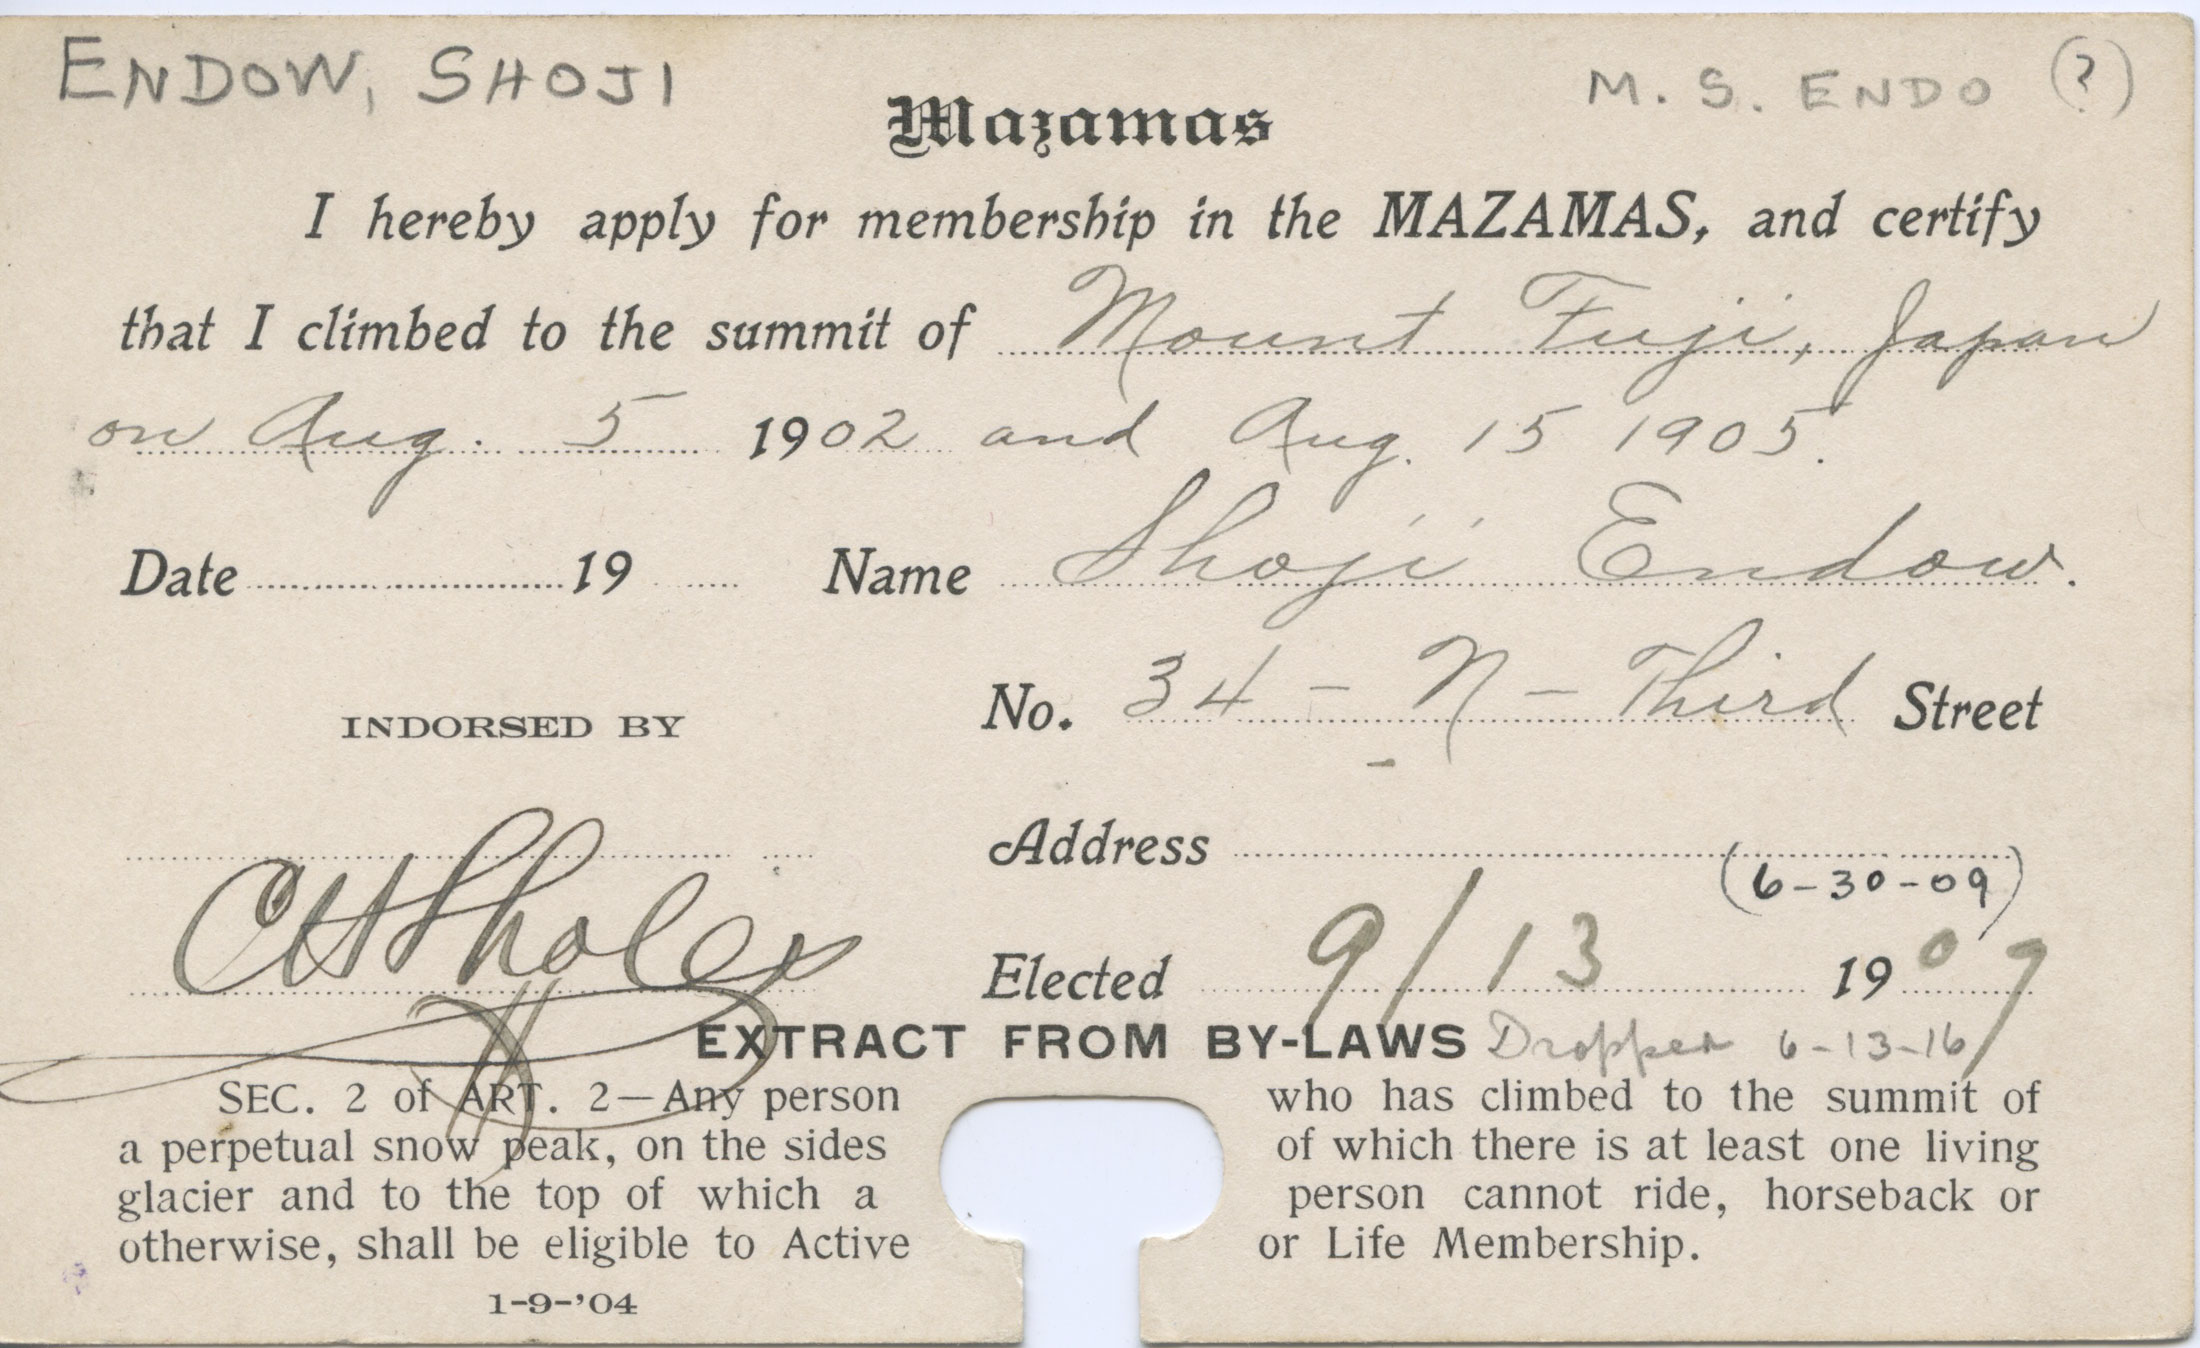 ENDOW, SHOJI
M. S. ENDO (?)
Mazamas
I hereby apply for membership in the MAZAMAS, and certify
that I climbed to the summit of Mount Fuji, Japan
on Aug. 5 1902 and Aug. 15 1905.
Date 19 Name Shoji Endow.
No. 34 - N - Third Street
INDORSED BY
Address
(6-30-09)
C H Sholes
Elected 9/13 1909
EXTRACT FROM BY-LAWS Dropped 6-13-16
SEC. 2 of ART. 2—Any person who has climbed to the summit of
a perpetual snow peak, on the sides of which there is at least one living
glacier and to the top of which a person cannot ride, horseback or
otherwise, shall be eligible to Active or Life Membership.
1-9-'04